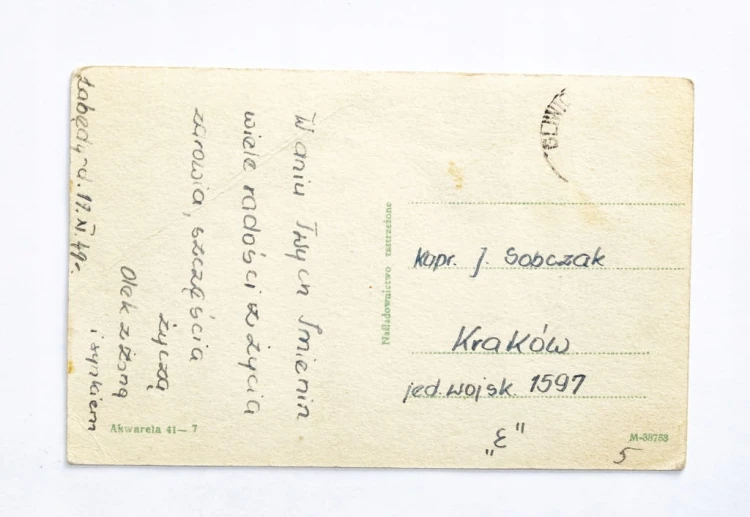 Łabędy d. 19.XI.49r.
W dniu Twych Imienin
wiele radości z życia
zdrowia, szczęścia
życzą
Olek z żoną
i synkiem
Akwarela 41-7
Naśladownictwo zastrzeżone
GLIWIC
Kapr. J. Sobczak
Kraków
jed. wojsk. 1597
„ε"
M-38753
5